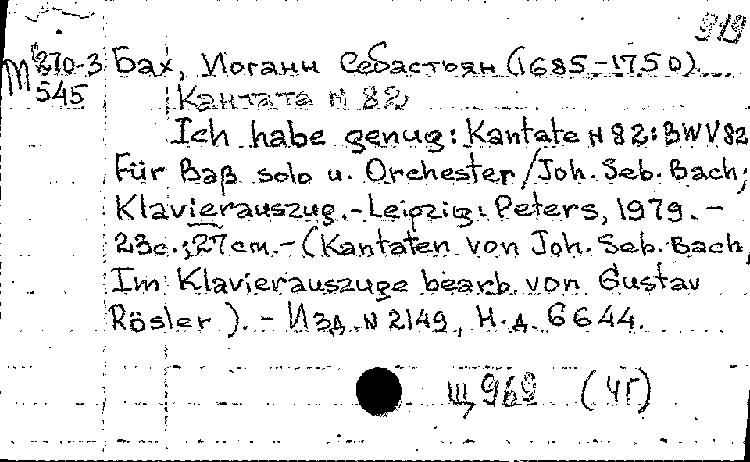 919
M 270-3 Бах, Иоганн Себастьян (1685-1750).
545 Кантата N 82
Ich habe genug: Kantate N 82: BWV 82
Für Baß solo u. Orchester / Joh. Seb. Bach;
Klavierauszug. - Leipzig: Peters, 1979. -
23с.; 27 cm. - (Kantaten von Joh. Seb. Bach,
Im Klavierauszuge bearb. von Gustav
Rösler). - Изд. N 2149, Н.д. 6644.
Щ 969 (ЧГ)